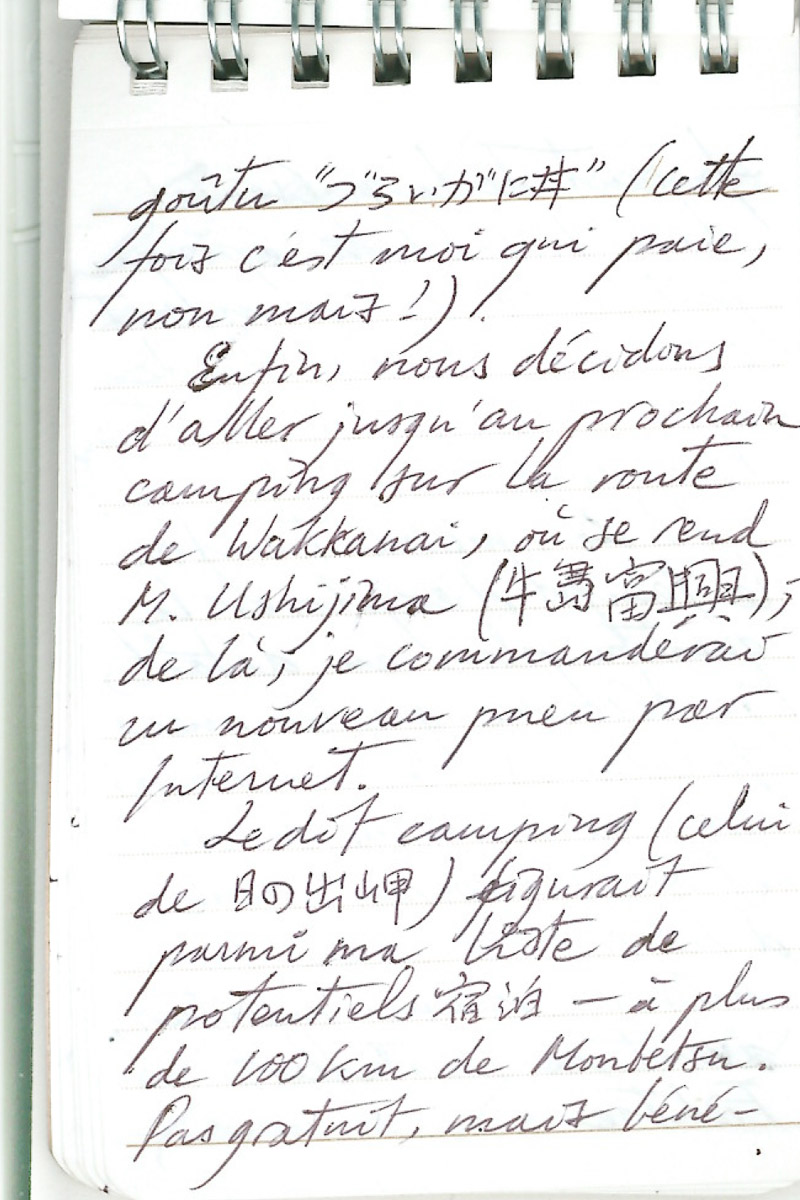 goûtu "づらいがに丼" (cette
fois c'est moi qui paie,
non mais !).
Enfin, nous décidons
d'aller jusqu'au prochain
camping sur la route
de Wakkanai, où se rend
M. Ushijima (牛島富興) ;
de là, je commanderai
un nouveau pneu par
Internet.
Ledit camping (celui
de 日の出岬) figurait
parmi ma liste de
potentiels 宿泊 – à plus
de 100 km de Monbetsu.
Pas gratuit, mais béné-